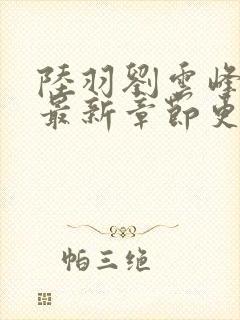 陸羽劉雲峰
最新章節更
帕三绝